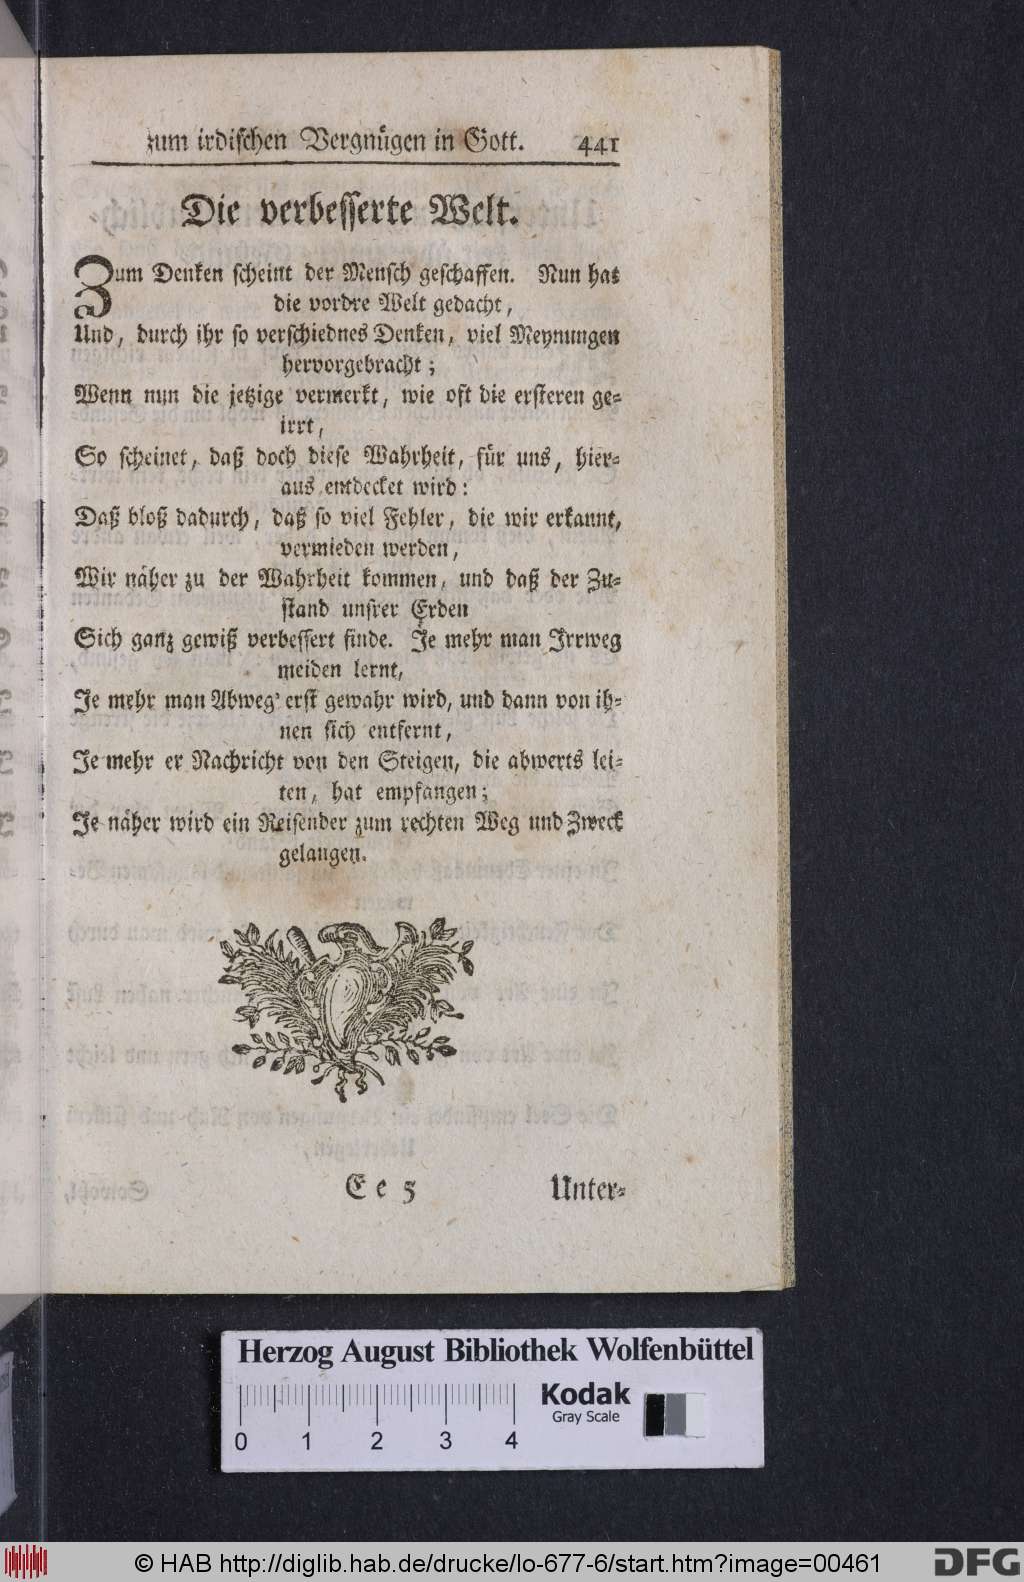 zum irdischen Vergnügen in Gott. 441
Die verbesserte Welt.
Zum Denken scheint der Mensch geschaffen. Nun hat
die vordre Welt gedacht,
Und, durch ihr so verschiednes Denken, viel Meynungen
hervorgebracht;
Wenn nun die jetzige vermerkt, wie oft die ersteren ge-
irrt,
So scheinet, daß doch diese Wahrheit, für uns, hier-
aus entdecket wird:
Daß bloß dadurch, daß so viel Fehler, die wir erkannt,
vermieden werden,
Wir näher zu der Wahrheit kommen, und daß der Zu-
stand unsrer Erden
Sich ganz gewiß verbessert finde. Je mehr man Irrweg
meiden lernt,
Je mehr man Abweg' erst gewahr wird, und dann von ih-
nen sich entfernt,
Je mehr er Nachricht von den Steigen, die abwerts lei-
ten, hat empfangen;
Je näher wird ein Reisender zum rechten Weg und Zweck
gelangen.
Ee 5 Unter-
Herzog August Bibliothek Wolfenbüttel
Kodak
Gray Scale
0 1 2 3 4
© HAB http://diglib.hab.de/drucke/lo-677-6/start.htm?image=00461
DFG